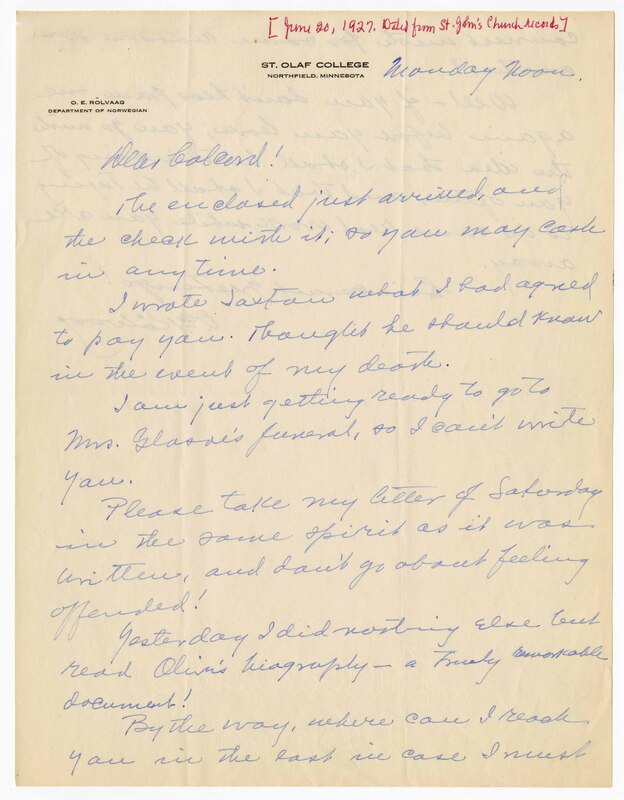 [June 20, 1927. Dated from St. John's Church records]
ST. OLAF COLLEGE
NORTHFIELD, MINNESOTA
Monday Noon.
O. E. ROLVAAG
DEPARTMENT OF NORWEGIAN
Dear Colcord!
The enclosed just arrived, and
the check with it; so you may cash
in any time.
I wrote Saxton what I had agreed
to pay you. Thought he should know
in the event of my death.
I am just getting ready to go to
Mrs. Glasoe's funeral, so I can't write
you.
Please take my letter of Saturday
in the same spirit as it was
written, and don't go about feeling
offended!
Yesterday I did nothing else but
read Olivi's biography — a truly remarkable
document!
By the way, where can I reach
you in the east in case I must